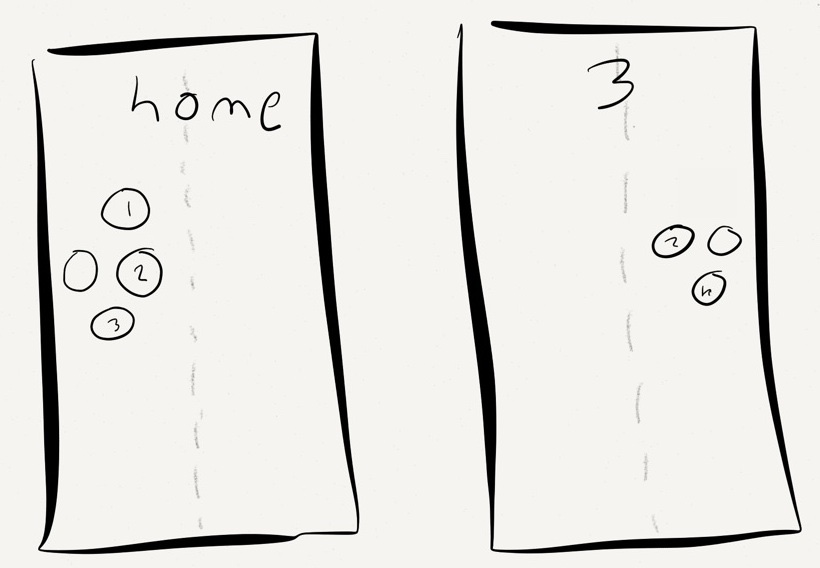 home
1
2
3
3
2
h